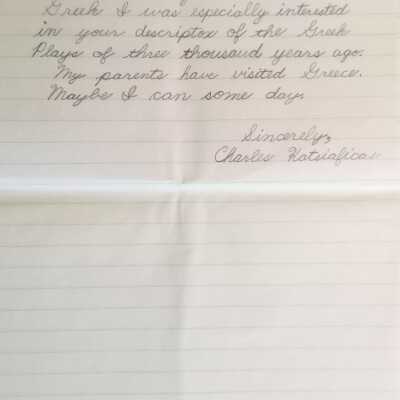 Greek I was especially interested
in your descriptox of the Greek
Plays of three thousand years ago.
My parents have visited Greece.
Maybe I can some day.
Sincerely,
Charles Katsiaficas